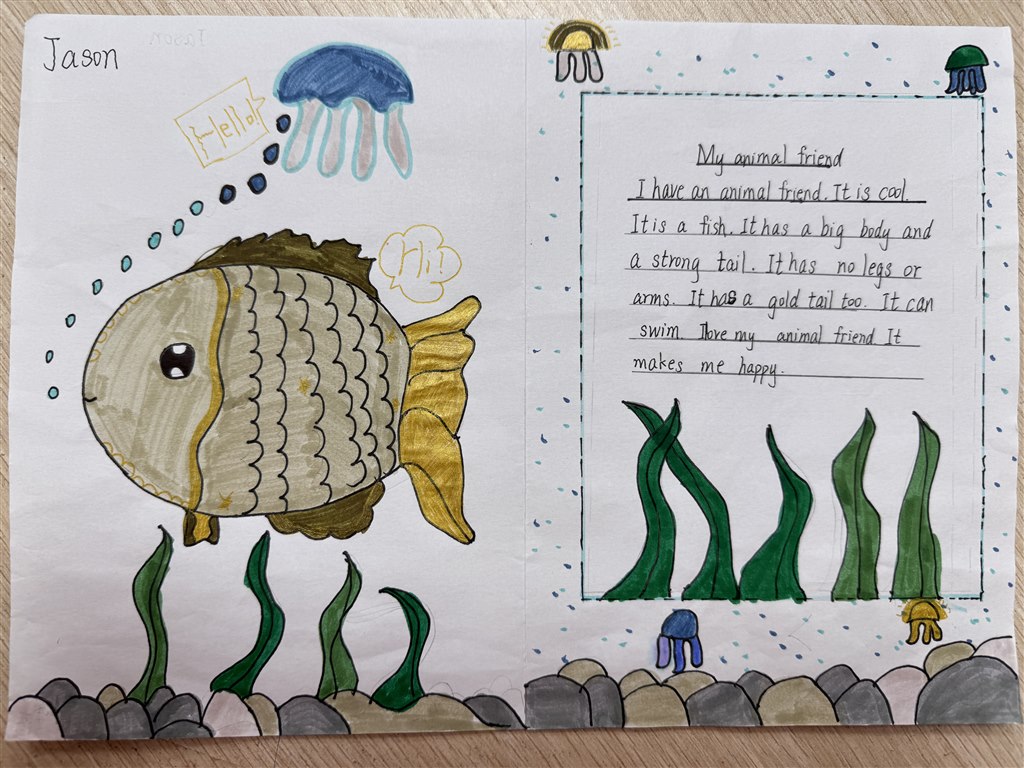 Jason
Hello!
Hi!
My animal friend
I have an animal friend. It is cool.
It is a fish. It has a big body and
a strong tail. It has no legs or
arms. It has a gold tail too. It can
swim. I love my animal friend It
makes me happy.